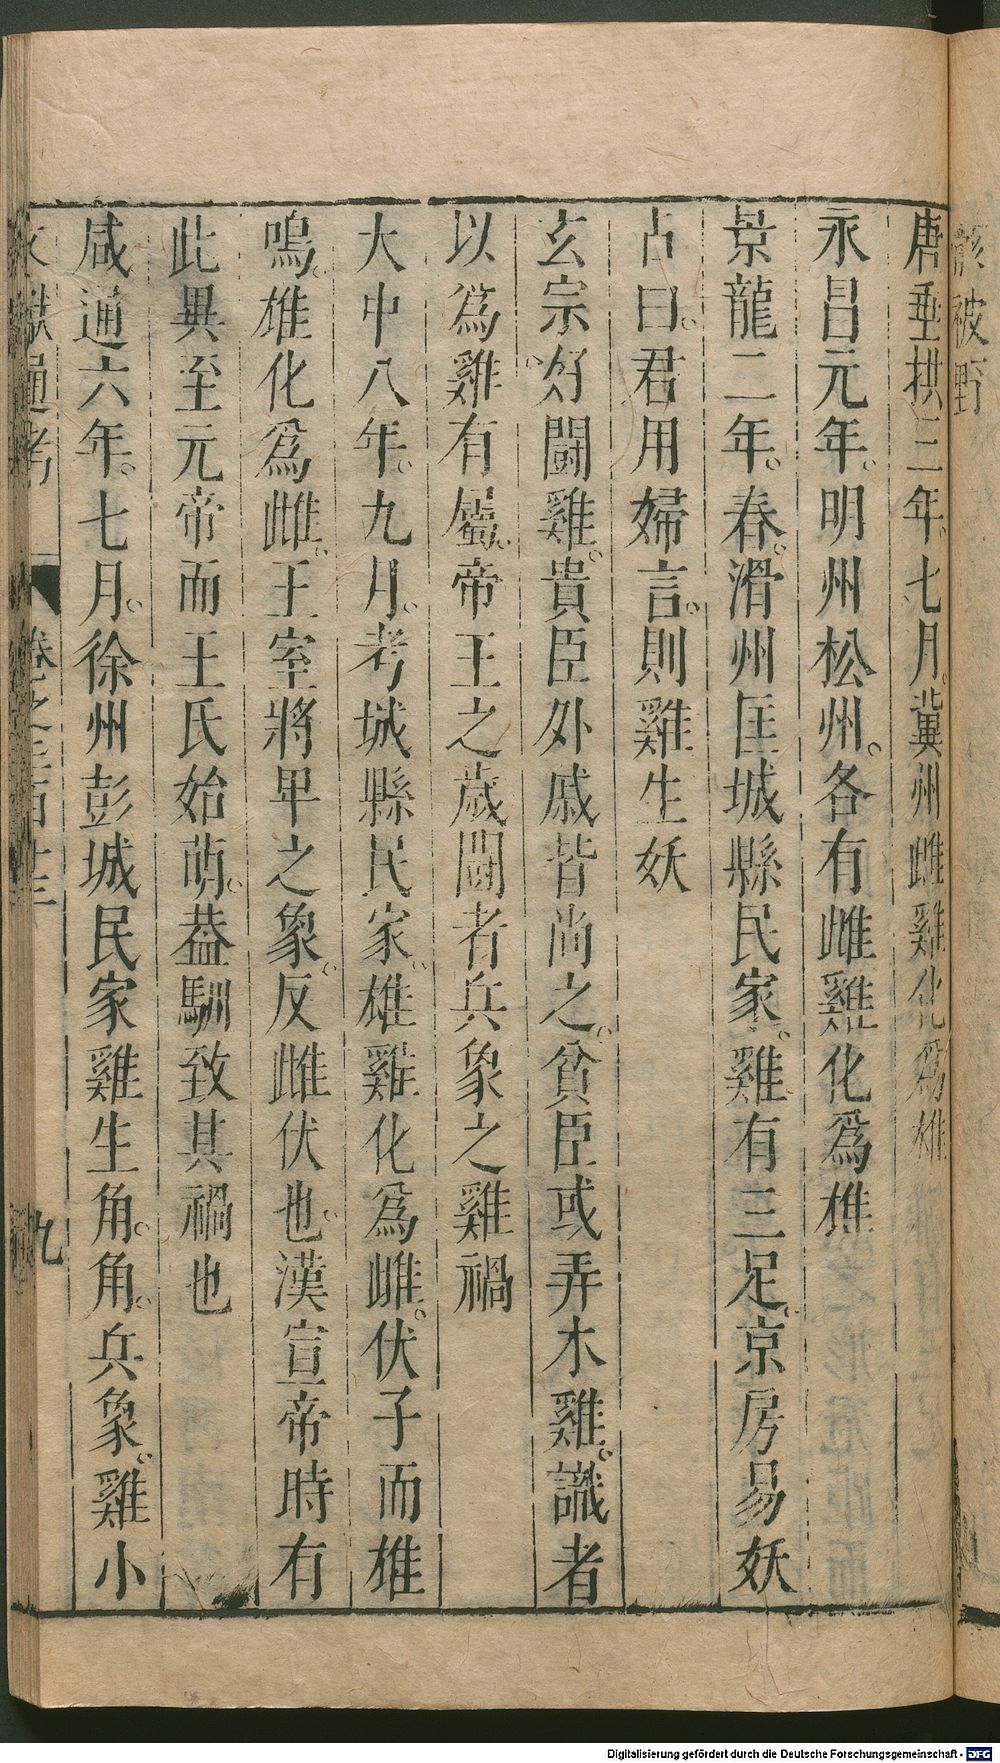 唐垂拱三年。七月。冀州雌雞化爲雄
永昌元年。明州松州。各有雌雞化爲雄
景龍二年。春。滑州匡城縣民家。雞有三足。京房易妖
占曰。君用婦言。則雞生妖
玄宗好鬪雞。貴臣外戚皆尚之。貧臣或弄木雞。識者
以爲雞有屬。帝王之歲鬪者兵象之雞禍
大中八年。九月。考城縣民家。雄雞化爲雌。伏子而雄
鳴。雄化爲雌。王室將卑之象。反雌伏也。漢宣帝時有
此異至元帝而王氏始萌。葢馴致其禍也
咸通六年。七月。徐州彭城民家雞生角。角。兵象。雞小
文獻通考 卷之三百十三 九
被野
Digitalisierung gefördert durch die Deutsche Forschungsgemeinschaft - DFG